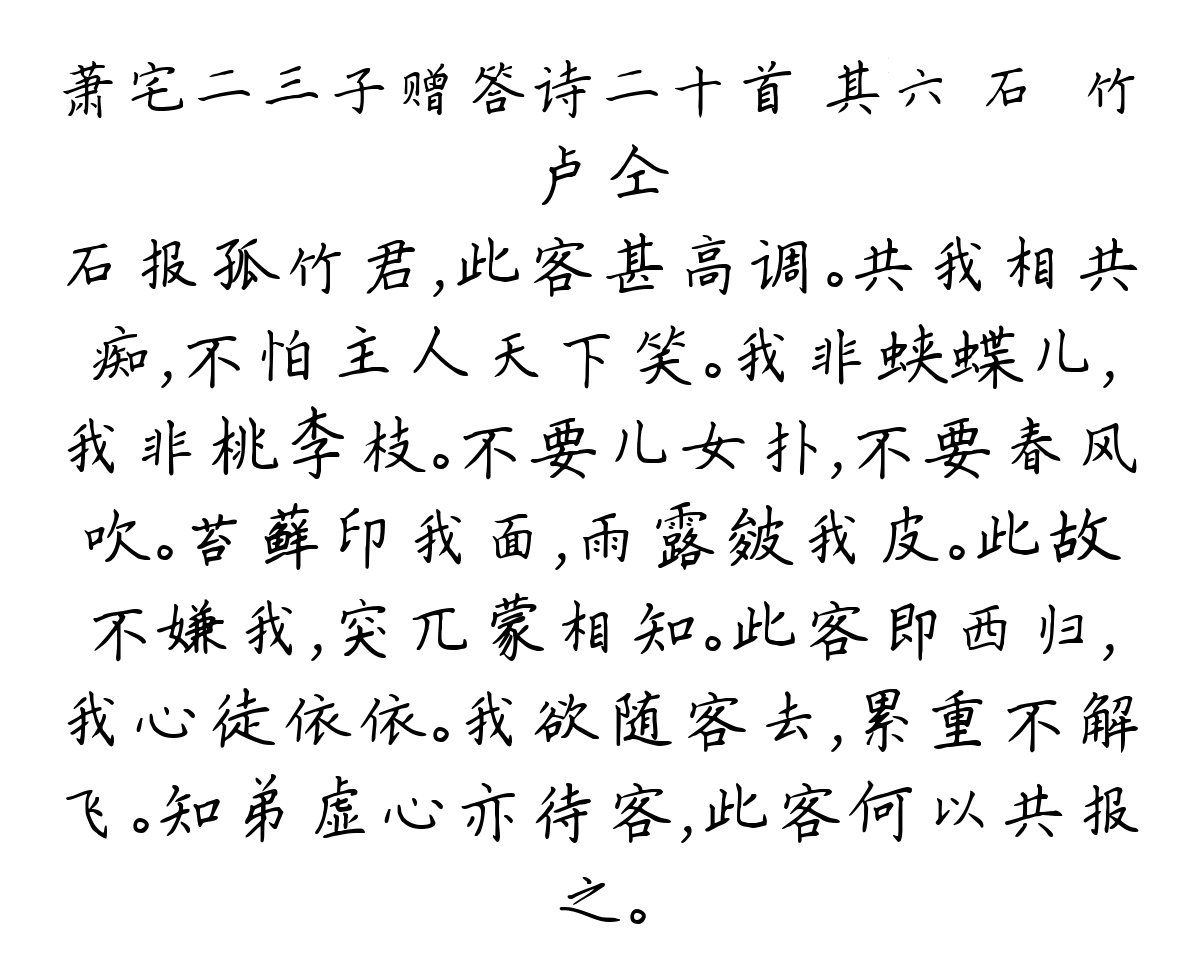 萧宅二三子赠答诗二十首 其六 石 竹
卢仝
石报孤竹君,此客甚高调。共我相共
痴,不怕主人天下笑。我非蛱蝶儿,
我非桃李枝。不要儿女扑,不要春风
吹。苔藓印我面,雨露皴我皮。此故
不嫌我,突兀蒙相知。此客即西归,
我心徒依依。我欲随客去,累重不解
飞。知弟虚心亦待客,此客何以共报
之。